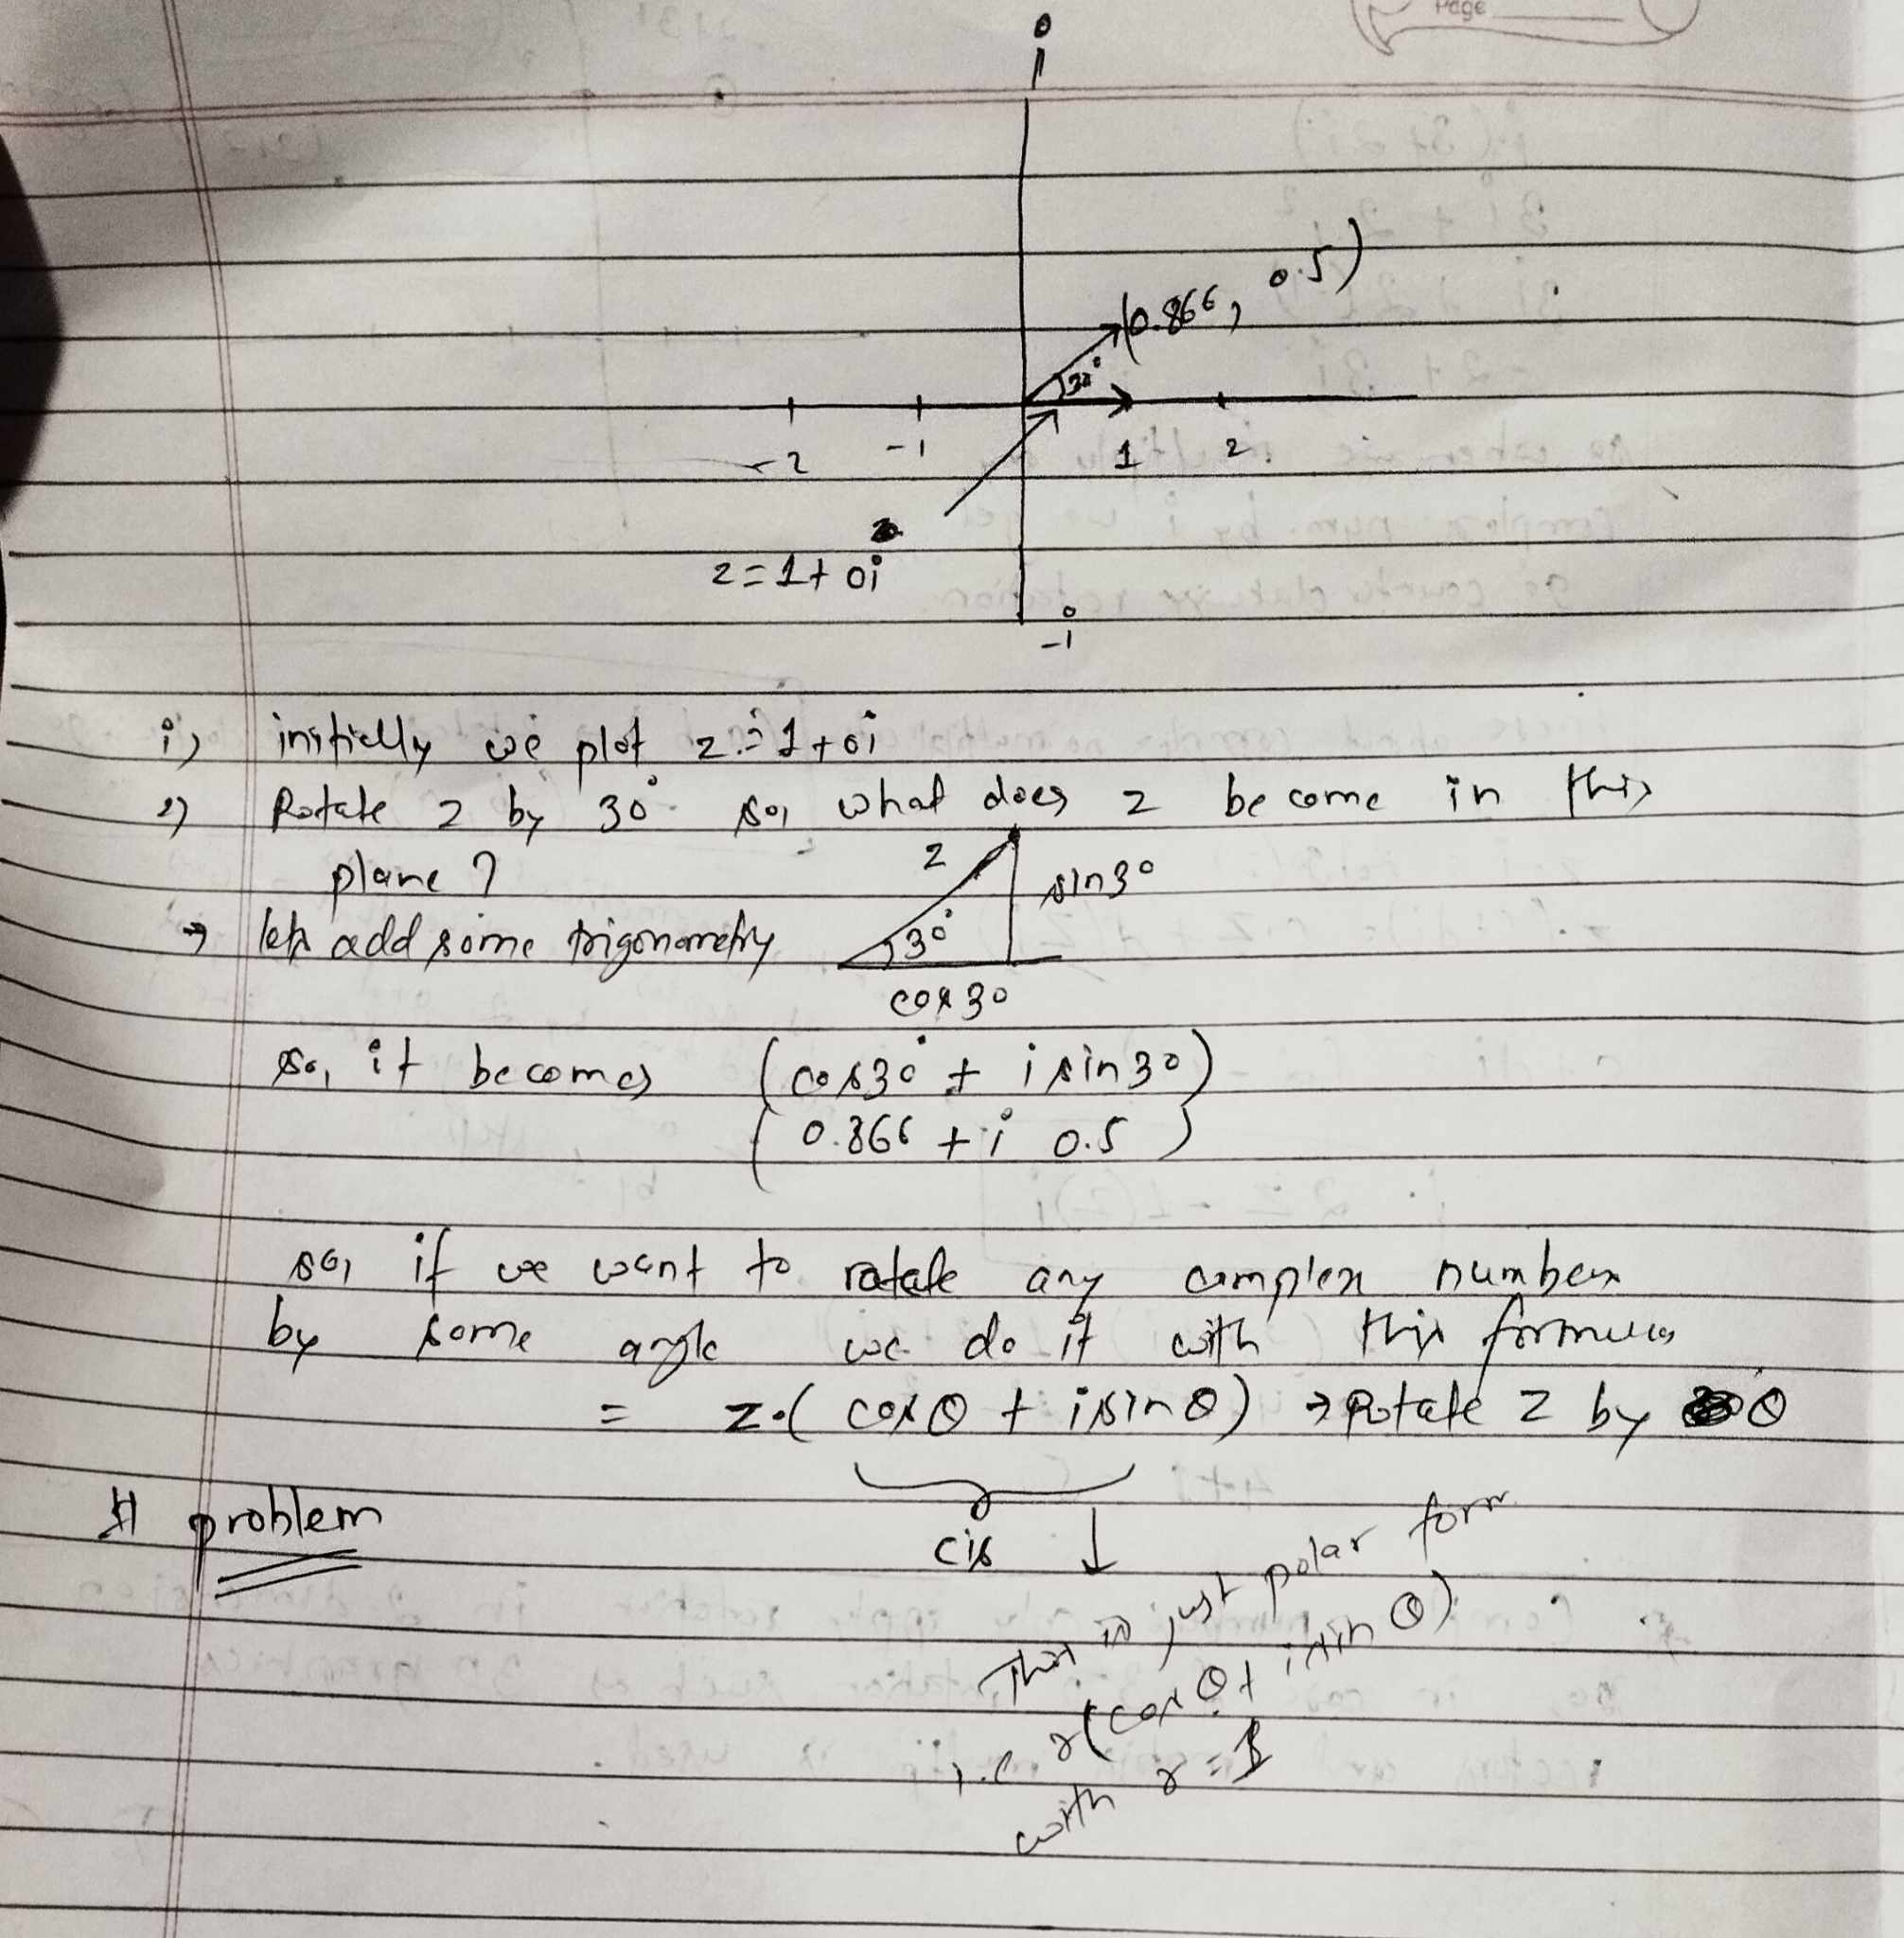 Page
i
(0.866, 0.5)
30°
-2 -1 1 2
z = 1 + 0i
-i
i) initially we plot z = 1 + 0i
2) Rotate z by 30° so, what does z become in this
plane ?
z
sin30
→ lets add some trigonometry
30°
cos30
so, it becomes (cos30° + i sin30)
(0.866 + i 0.5)
so, if we want to rotate any complex number
by some angle we do it with this formula
= z·(cosθ + isinθ) → Rotate z by θ
# problem
cis ↓
This is just polar form
i.e r(cosθ + isinθ)
with r = 1